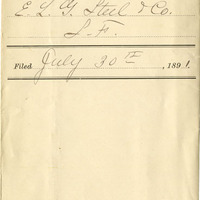 E. L. G. Steel & Co.
S. F.
Filed July 30th, 1891.